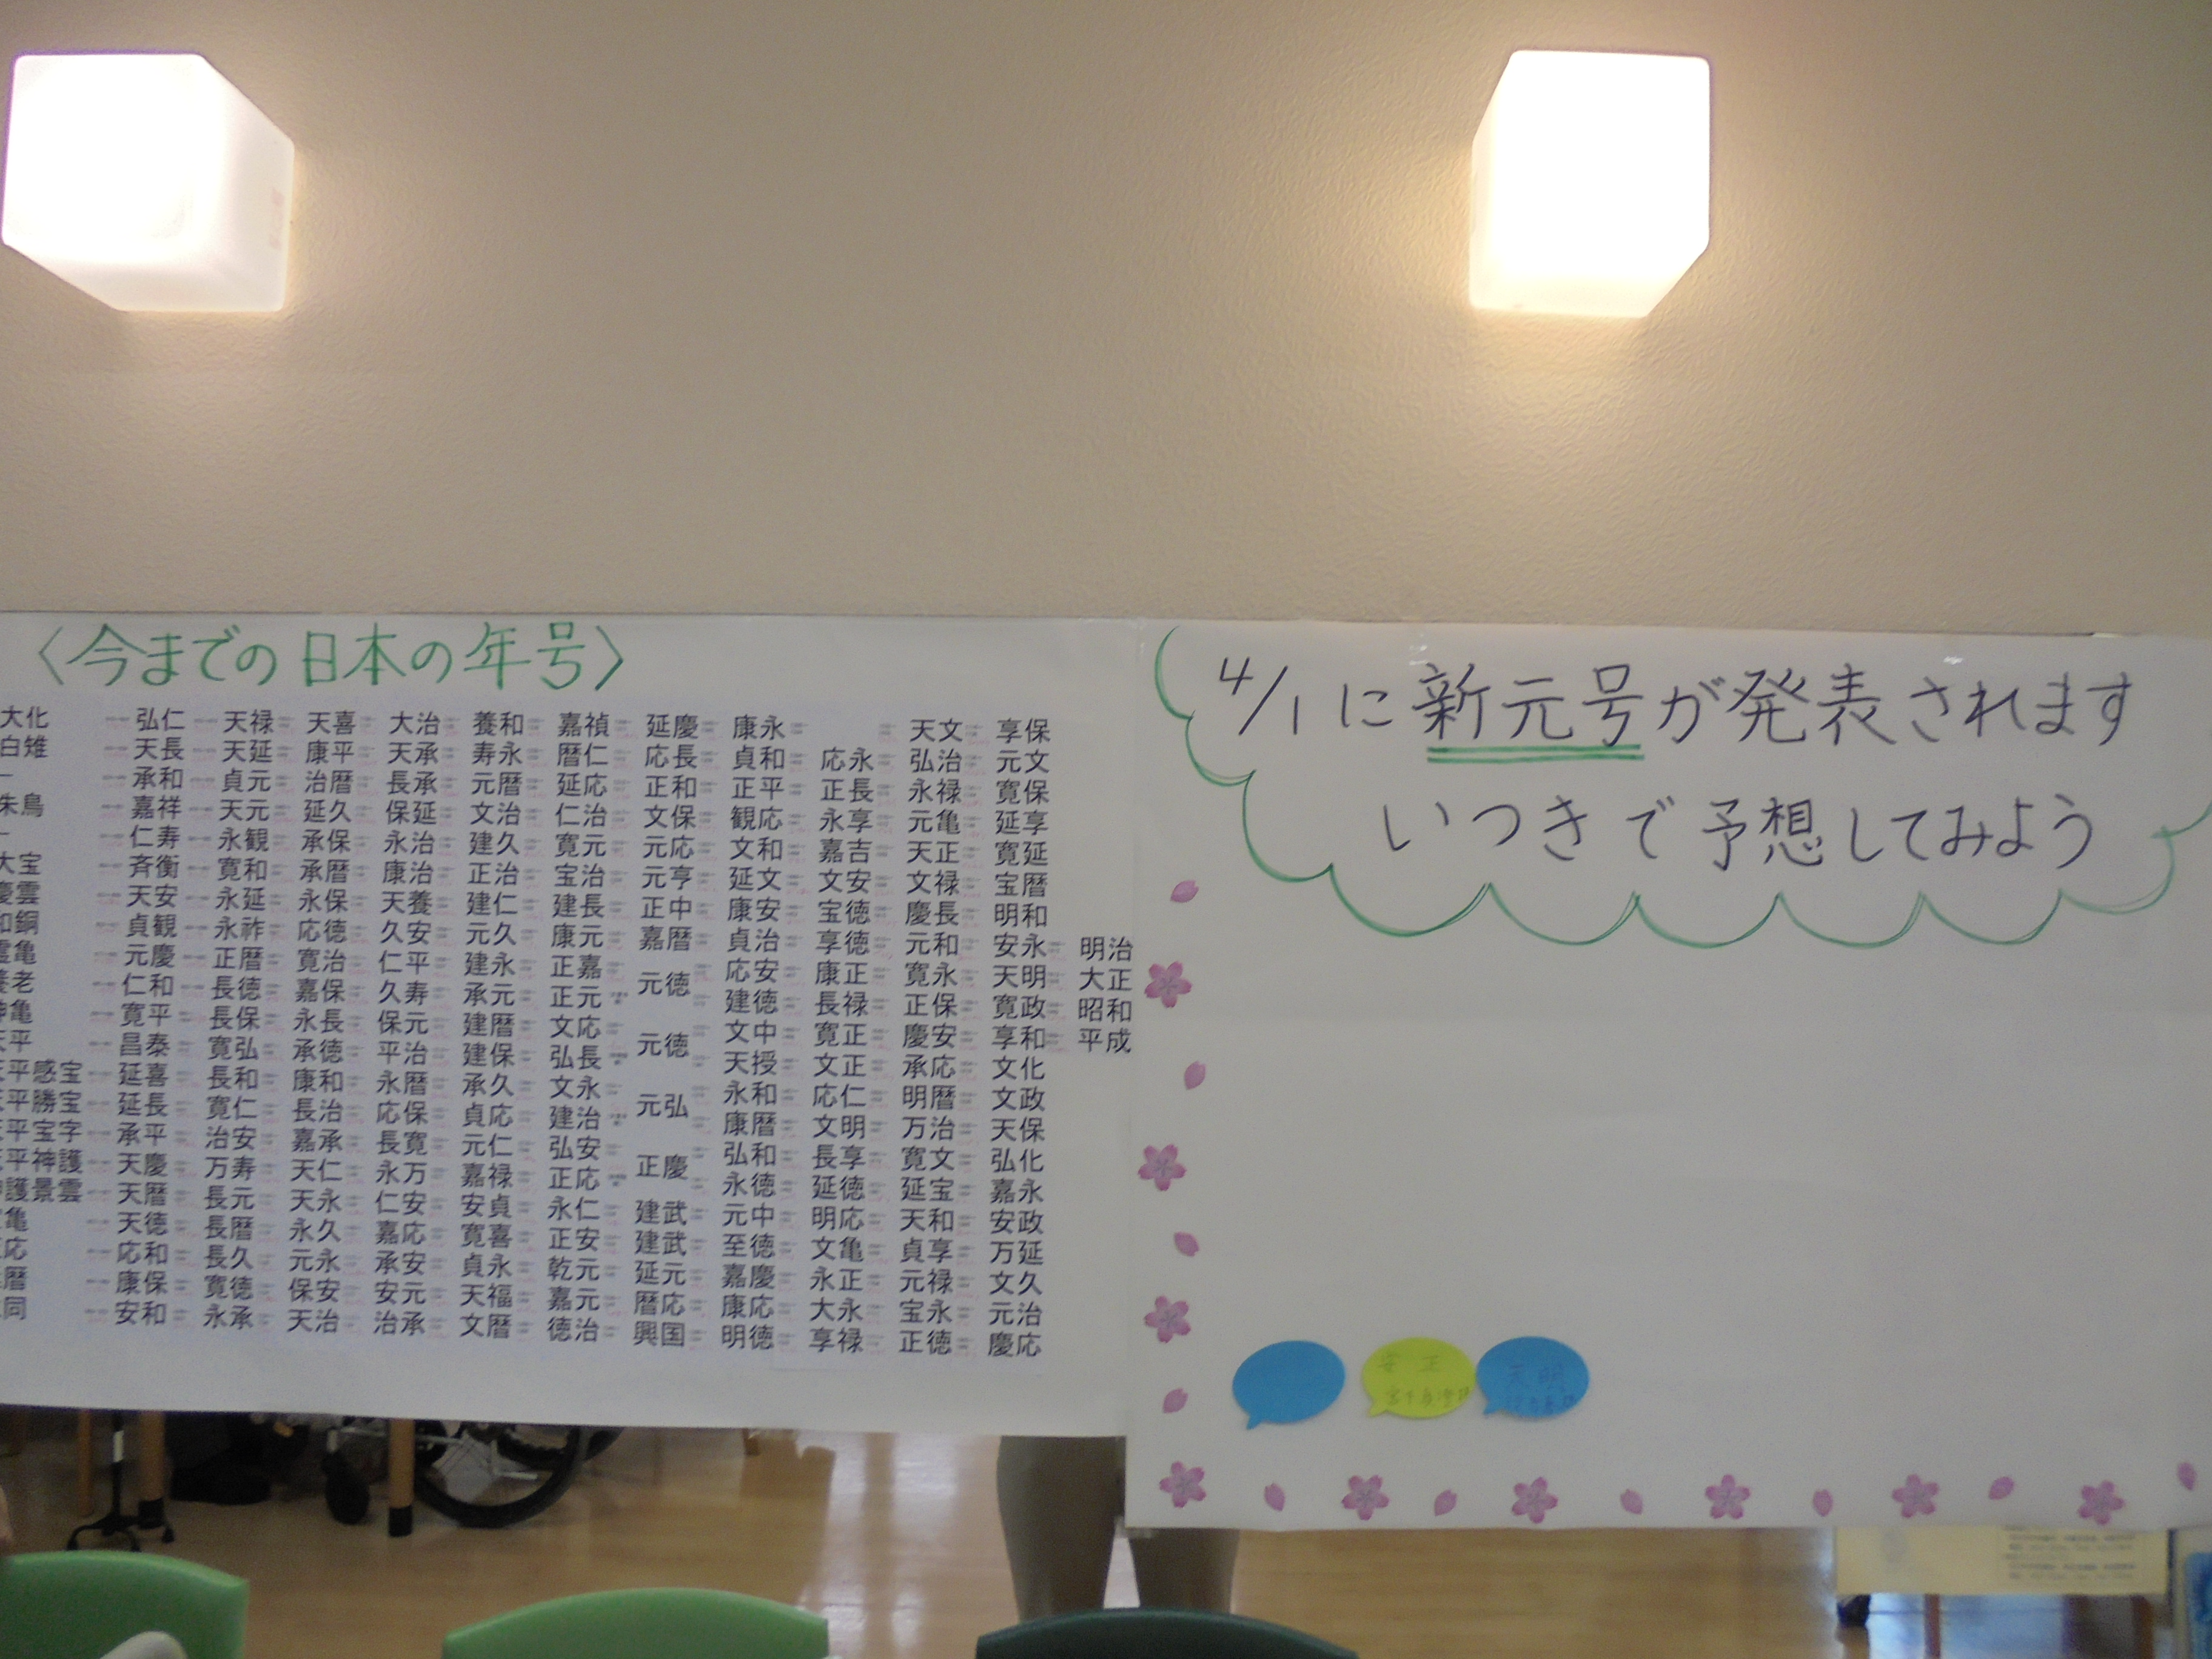 〈今までの日本の年号〉
大化 白雉 朱鳥 大宝 慶雲 和銅 霊亀 養老 神亀 天平 天平感宝 天平勝宝 天平宝字 天平神護 護景雲 亀 応 暦 同
弘仁 天長 承和 嘉祥 仁寿 斉衡 天安 貞観 元慶 仁和 寛平 昌泰 延喜 延長 承平 天慶 天暦 天徳 応和 康保 安和
天禄 天延 貞元 天元 永観 寛和 永延 永祚 正暦 長徳 長保 寛弘 長和 寛仁 治安 万寿 長元 長暦 長久 寛徳 永承
天喜 康平 治暦 延久 承保 承暦 永保 応徳 寛治 嘉保 永長 承徳 康和 長治 嘉承 天仁 天永 永久 元永 保安 天治
大治 天承 長承 保延 永治 康治 天養 久安 仁平 久寿 保元 平治 永暦 応保 長寛 永万 仁安 嘉応 承安 安元 治承
養和 寿永 元暦 文治 建久 正治 建仁 元久 建永 承元 建暦 建保 承久 貞応 元仁 嘉禄 安貞 寛喜 貞永 天福 文暦
嘉禎 暦仁 延応 仁治 寛元 宝治 建長 康元 正嘉 正元 文応 弘長 文永 建治 弘安 正応 永仁 正安 乾元 嘉元 徳治
延慶 応長 正和 文保 元応 元亨 正中 嘉暦 元徳 元徳 元弘 正慶 建武 建武 延元 暦応 興国
康永 貞和 正平 観応 文和 延文 康安 貞治 応安 建徳 文中 天授 永和 康暦 弘和 永徳 元中 至徳 嘉慶 康応 明徳
応永 正長 永享 嘉吉 文安 宝徳 享徳 康正 長禄 寛正 文正 応仁 文明 長享 延徳 明応 文亀 永正 大永 享禄
天文 弘治 永禄 元亀 天正 文禄 慶長 元和 寛永 正保 慶安 承応 明暦 万治 寛文 延宝 天和 貞享 元禄 宝永 正徳
享保 元文 寛保 延享 寛延 宝暦 明和 安永 天明 寛政 享和 文化 文政 天保 弘化 嘉永 安政 万延 文久 元治 慶応
明治 大正 昭和 平成
4/1に新元号が発表されます
いつきで予想してみよう
安正
天昭